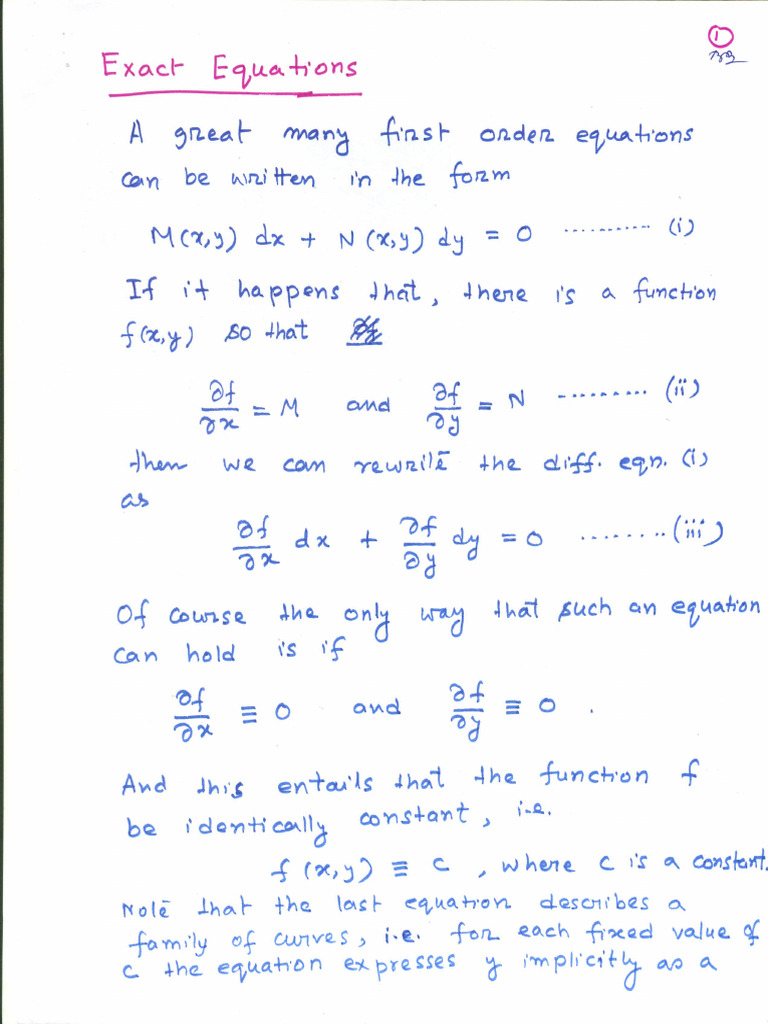 ①
Exact Equations
A great many first order equations
can be written in the form
M(x,y) dx + N(x,y) dy = 0 ........... (i)
If it happens that, there is a function
f(x,y) so that
∂f/∂x = M and ∂f/∂y = N ......... (ii)
then we can rewrite the diff. eqn. (i)
as
∂f/∂x dx + ∂f/∂y dy = 0 ........ (iii)
Of course the only way that such an equation
can hold is if
∂f/∂x ≡ 0 and ∂f/∂y ≡ 0 .
And this entails that the function f
be identically constant, i.e.
f(x,y) ≡ c , where c is a constant.
Note that the last equation describes a
family of curves, i.e. for each fixed value of
c the equation expresses y implicitly as a